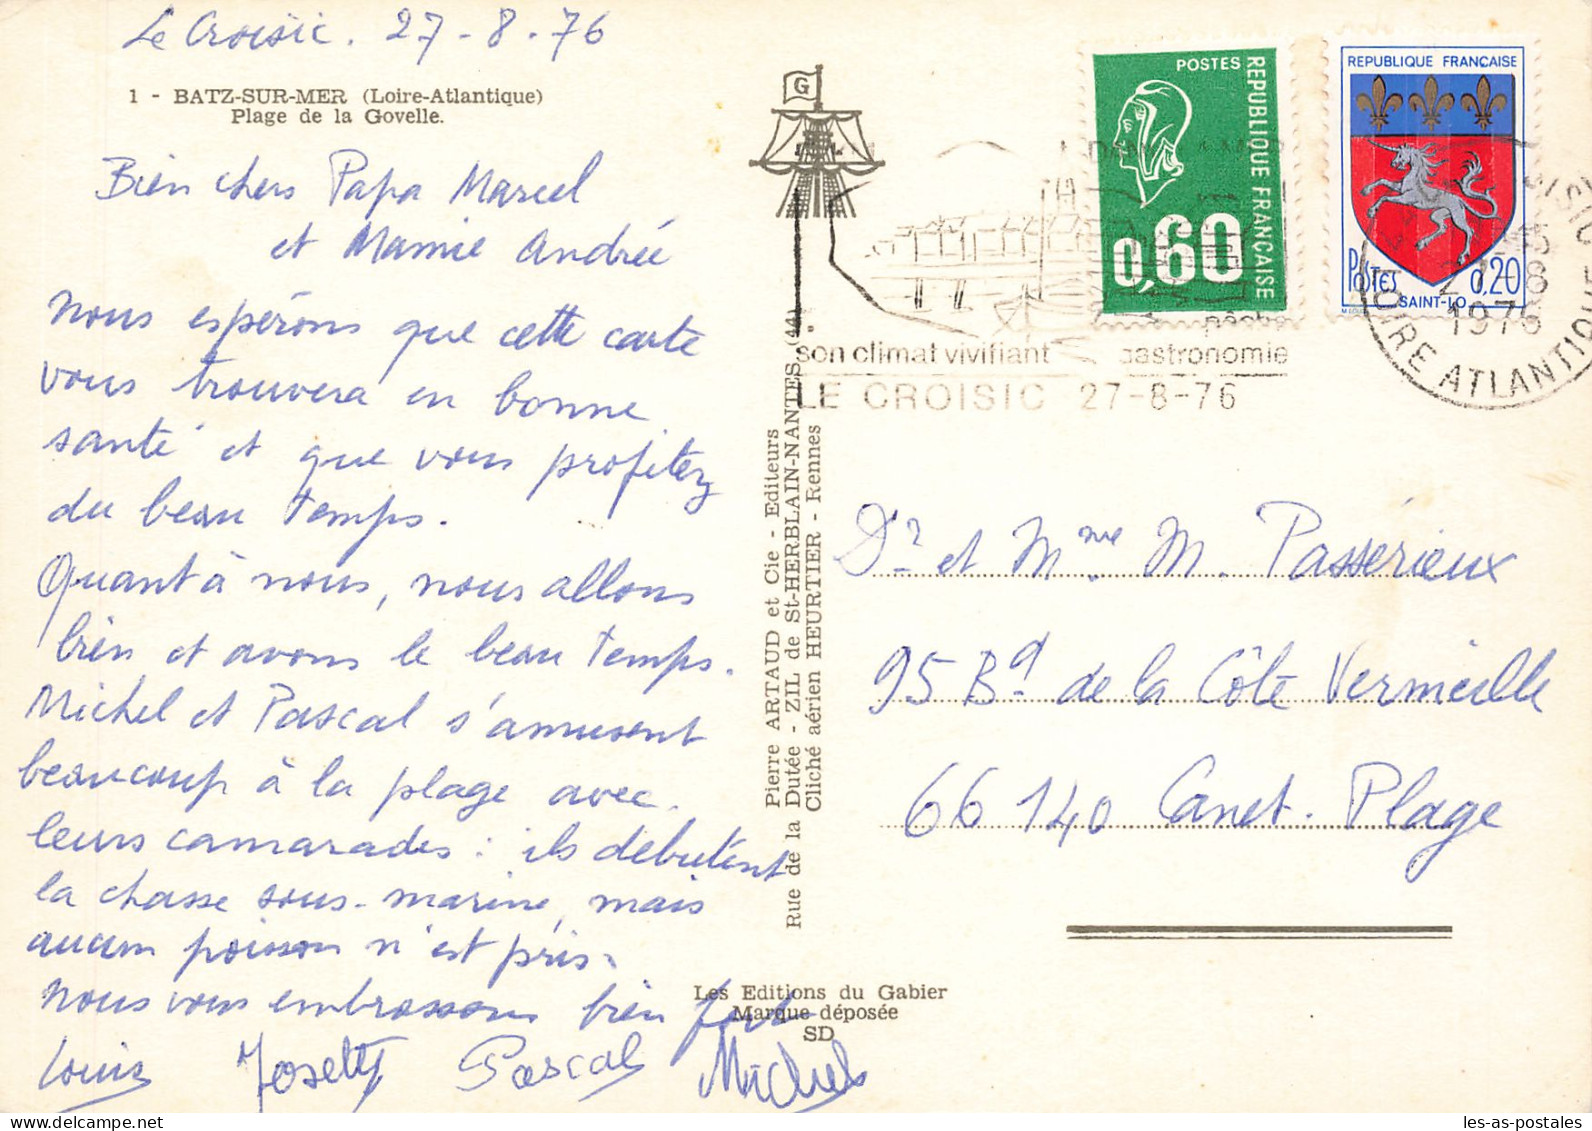 Le Croisic. 27-8-76
1 - BATZ-SUR-MER (Loire-Atlantique)
Plage de la Govelle.
Bien chers Papa Marcel
et Mamie Andrée
nous espérons que cette carte
vous trouvera en bonne
santé et que vous profitez
du beau temps.
Quant à nous, nous allons
bien et avons le beau temps.
Michel et Pascal s'amusent
beaucoup à la plage avec
leurs camarades : ils débutent
la chasse sous-marine, mais
aucun poisson n'est pris.
nous vous embrassons bien fort
Louis Josette Pascal Michel
G
Pierre ARTAUD et Cie - Editeurs
Rue de la Dutée - ZIL de St-HERBLAIN-NANTES (44)
Cliché aérien HEURTIER - Rennes
Les Editions du Gabier
Marque déposée
SD
POSTES
REPUBLIQUE FRANCAISE
0,60
REPUBLIQUE FRANÇAISE
POSTES 0,20
SAINT-LO
pêche
son climat vivifiant gastronomie
LE CROISIC 27-8-76
27-8
1976
LOIRE ATLANTIQUE
Dr et Mme M. Passérieux
95 Bd de la Côte Vermeille
66140 Canet-Plage
les-as-postales